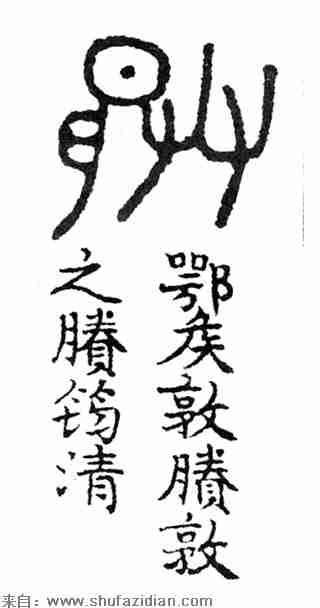 鄂矦敦賸敦
之賸筠清
来自：www.shufazidian.com